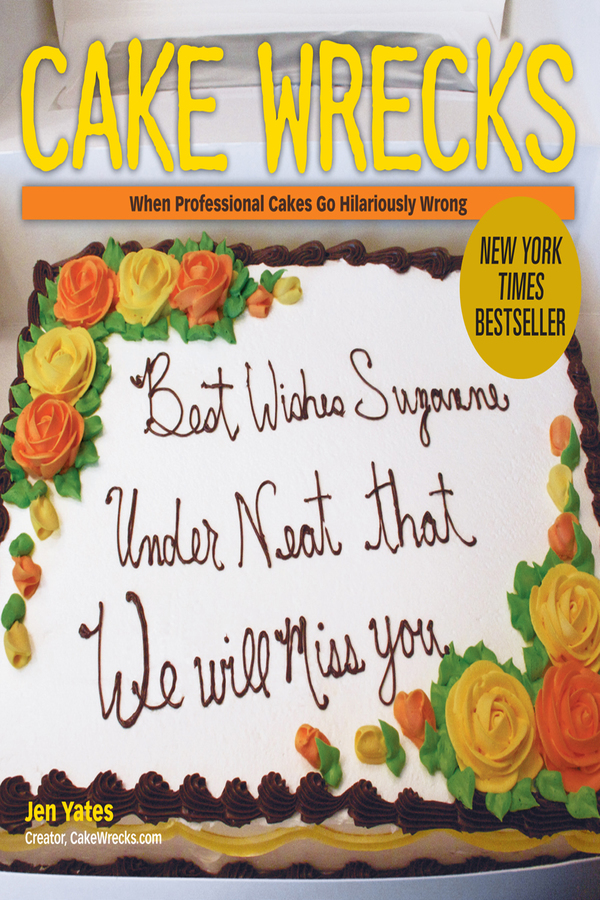 CAKE WRECKS
When Professional Cakes Go Hilariously Wrong
NEW YORK
TIMES
BESTSELLER
Best Wishes Suzanne
Under Neat that
We will Miss you
Jen Yates
Creator, CakeWrecks.com